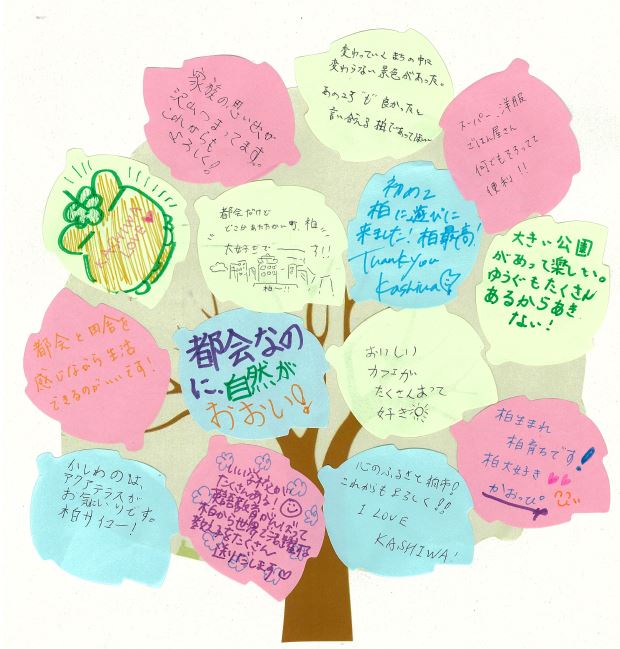 家族の思い出が
沢山つまってます。
これからも
よろしく!
変わっていくまちの中に
変わらない景色があった。
あのころ"も"良かったと
言い合える柏であってほしい
スーパー、洋服
ごはん屋さん
何でもそろってて
便利!!
KASHIWA
LOVE
都会だけど
どこかあたたかい町、柏
大好きでーーーす!!
柏ー!!
初めて
柏に遊びに
来ました!柏最高!
Thankyou
Kashiwa
大きい公園
があって楽しい。
ゆうぐもたくさん
あるからあき
ない!
都会と田舎を
感じながら生活
できるのがいいです!
都会なの
に、自然が
おおい!
おいしい
カフェが
たくさんあって
好き
柏生まれ
柏育ちです!
柏大好き
かおっぴ。
かしわのは、
アクアテラスが
お気にいりです。
柏サイコー!
いい
たくさんある!
英語教育がんばって
柏から世界で活躍する
教え子をたくさん
送りだします
心のふるさと柏市!
これからもよろしく!!
I LOVE
KASHIWA!